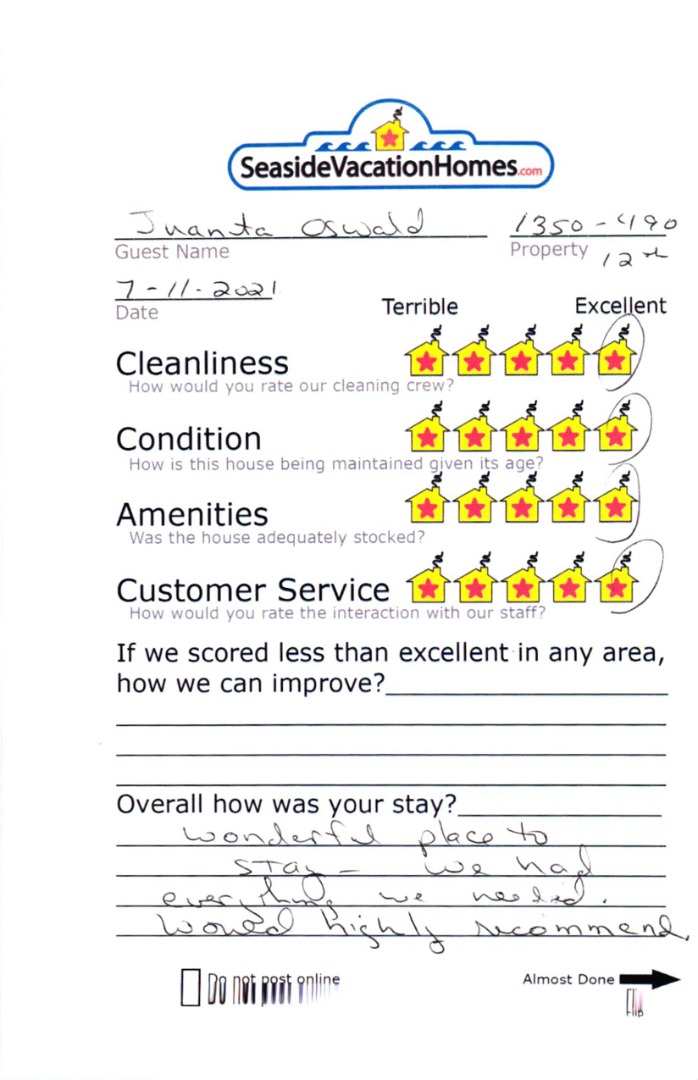 SeasideVacationHomes.com
Juanita Oswald 1350-490
Guest Name Property 12th
7-11-2021
Date Terrible Excellent
Cleanliness
How would you rate our cleaning crew?
Condition
How is this house being maintained given its age?
Amenities
Was the house adequately stocked?
Customer Service
How would you rate the interaction with our staff?
If we scored less than excellent in any area,
how we can improve?
Overall how was your stay?
wonderful place to
stay - we had
everything we needed.
Would highly recommend.
Do not post online Almost Done
Flip